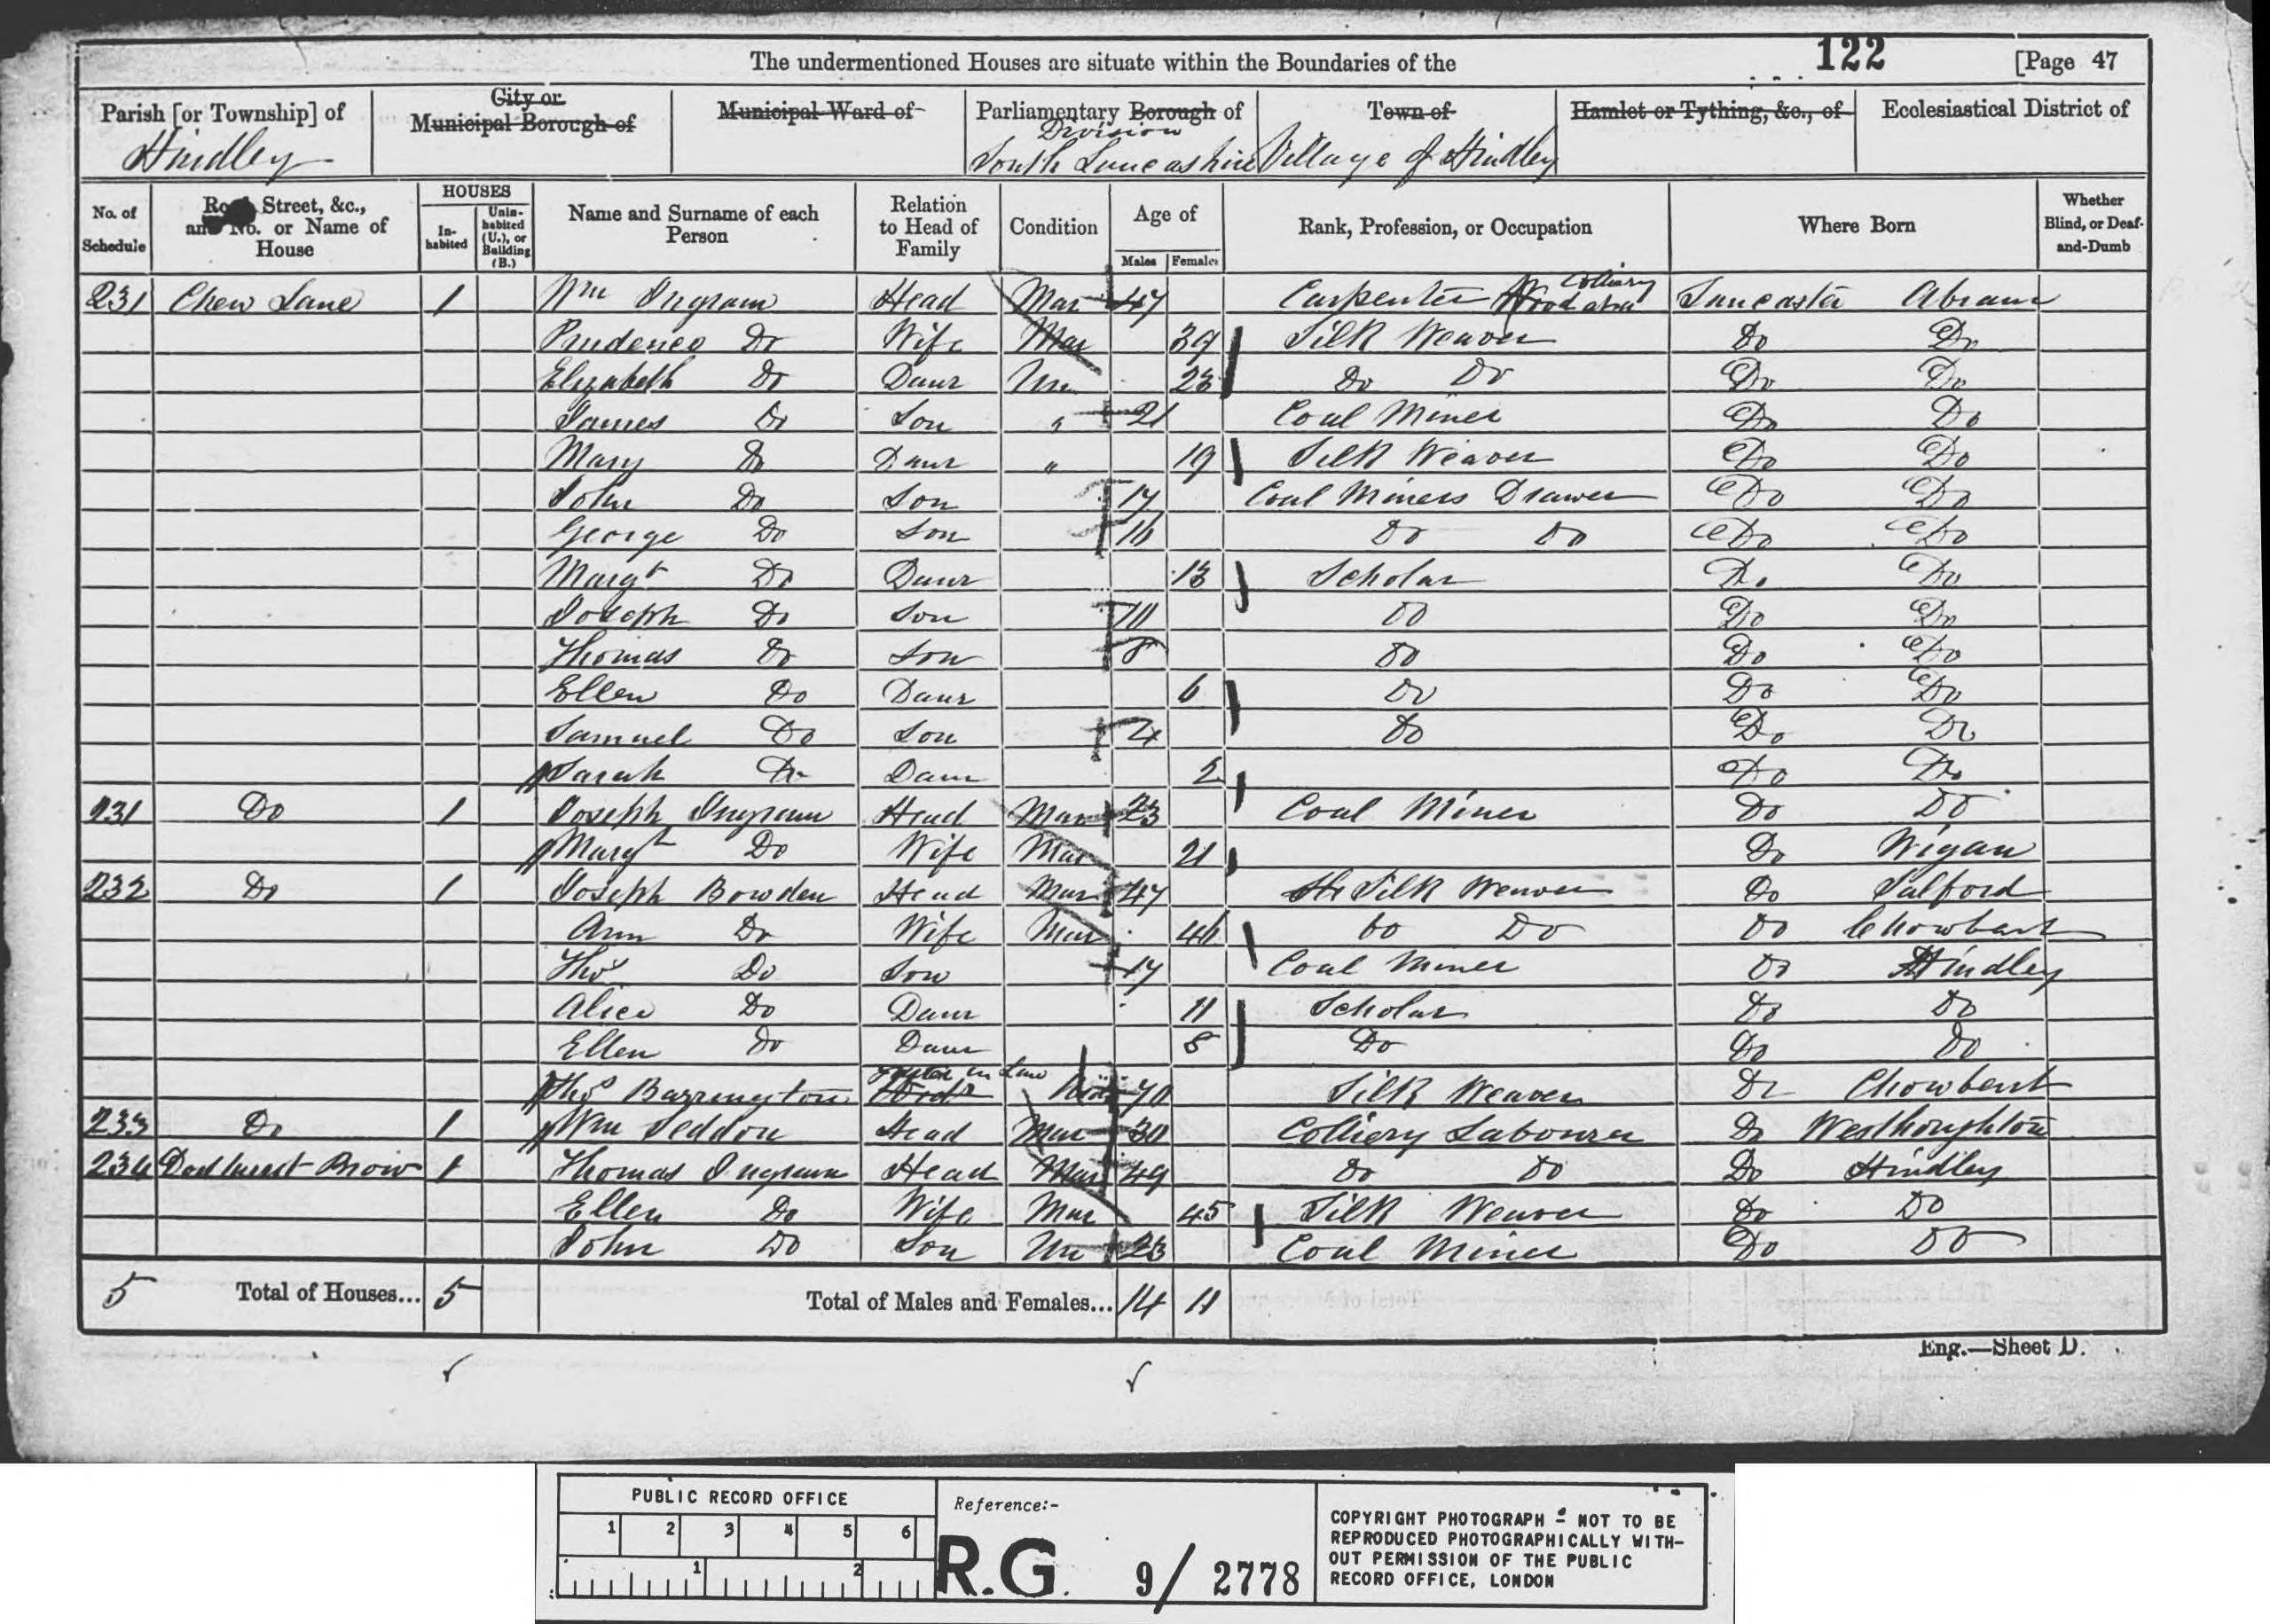 The undermentioned Houses are situate within the Boundaries of the 122 [Page 47
Parish [or Township] of City or Municipal Borough of Municipal Ward of Parliamentary Borough of Town of Hamlet or Tything, &c., of Ecclesiastical District of
Division
Hindley South Lancashire Village of Hindley
No. of Schedule Road, Street, &c., and No. or Name of House HOUSES Inhabited Uninhabited (U.), or Building (B.) Name and Surname of each Person Relation to Head of Family Condition Age of Males Females Rank, Profession, or Occupation Where Born Whether Blind, or Deaf-and-Dumb
231 Chew Lane 1 Wm Ingram Head Mar 47 Carpenter Colliery Lancaster Abram
Prudence Do Wife Mar 39 Silk Weaver Do Do
Elizabeth Do Daur Un 23 Do Do Do Do
James Do Son " 21 Coal Miner Do Do
Mary Do Daur " 19 Silk Weaver Do Do
John Do Son 17 Coal Miners Drawer Do Do
George Do Son 16 Do Do Do Do
Margt Do Daur 13 Scholar Do Do
Joseph Do Son 10 Do Do Do
Thomas Do Son 8 Do Do Do
Ellen Do Daur 6 Do Do Do
Samuel Do Son 4 Do Do Do
Sarah Do Daur 2 Do Do
231 Do 1 Joseph Ingram Head Mar 23 Coal Miner Do Do
Margt Do Wife Mar 21 Do Wigan
232 Do 1 Joseph Bowden Head Mar 47 Silk Weaver Do Salford
Ann Do Wife Mar 46 Do Do Do Chowbent
Thos Do Son 17 Coal Miner Do Hindley
Alice Do Daur 11 Scholar Do Do
Ellen Do Daur 8 Do Do Do
Thos Barrington in Law 70 Silk Weaver Do Chowbent
233 Do 1 Wm Seddon Head Mar 30 Colliery Labourer Do Westhoughton
234 Brow 1 Thomas Ingram Head Mar 49 Do Do Do Hindley
Ellen Do Wife Mar 45 Silk Weaver Do Do
John Do Son Un 23 Coal Miner Do Do
5 Total of Houses... 5 Total of Males and Females... 14 11
Eng.—Sheet D.
PUBLIC RECORD OFFICE
1 2 3 4 5 6
1 2
Reference:-
R.G. 9/2778
COPYRIGHT PHOTOGRAPH - NOT TO BE
REPRODUCED PHOTOGRAPHICALLY WITH-
OUT PERMISSION OF THE PUBLIC
RECORD OFFICE, LONDON